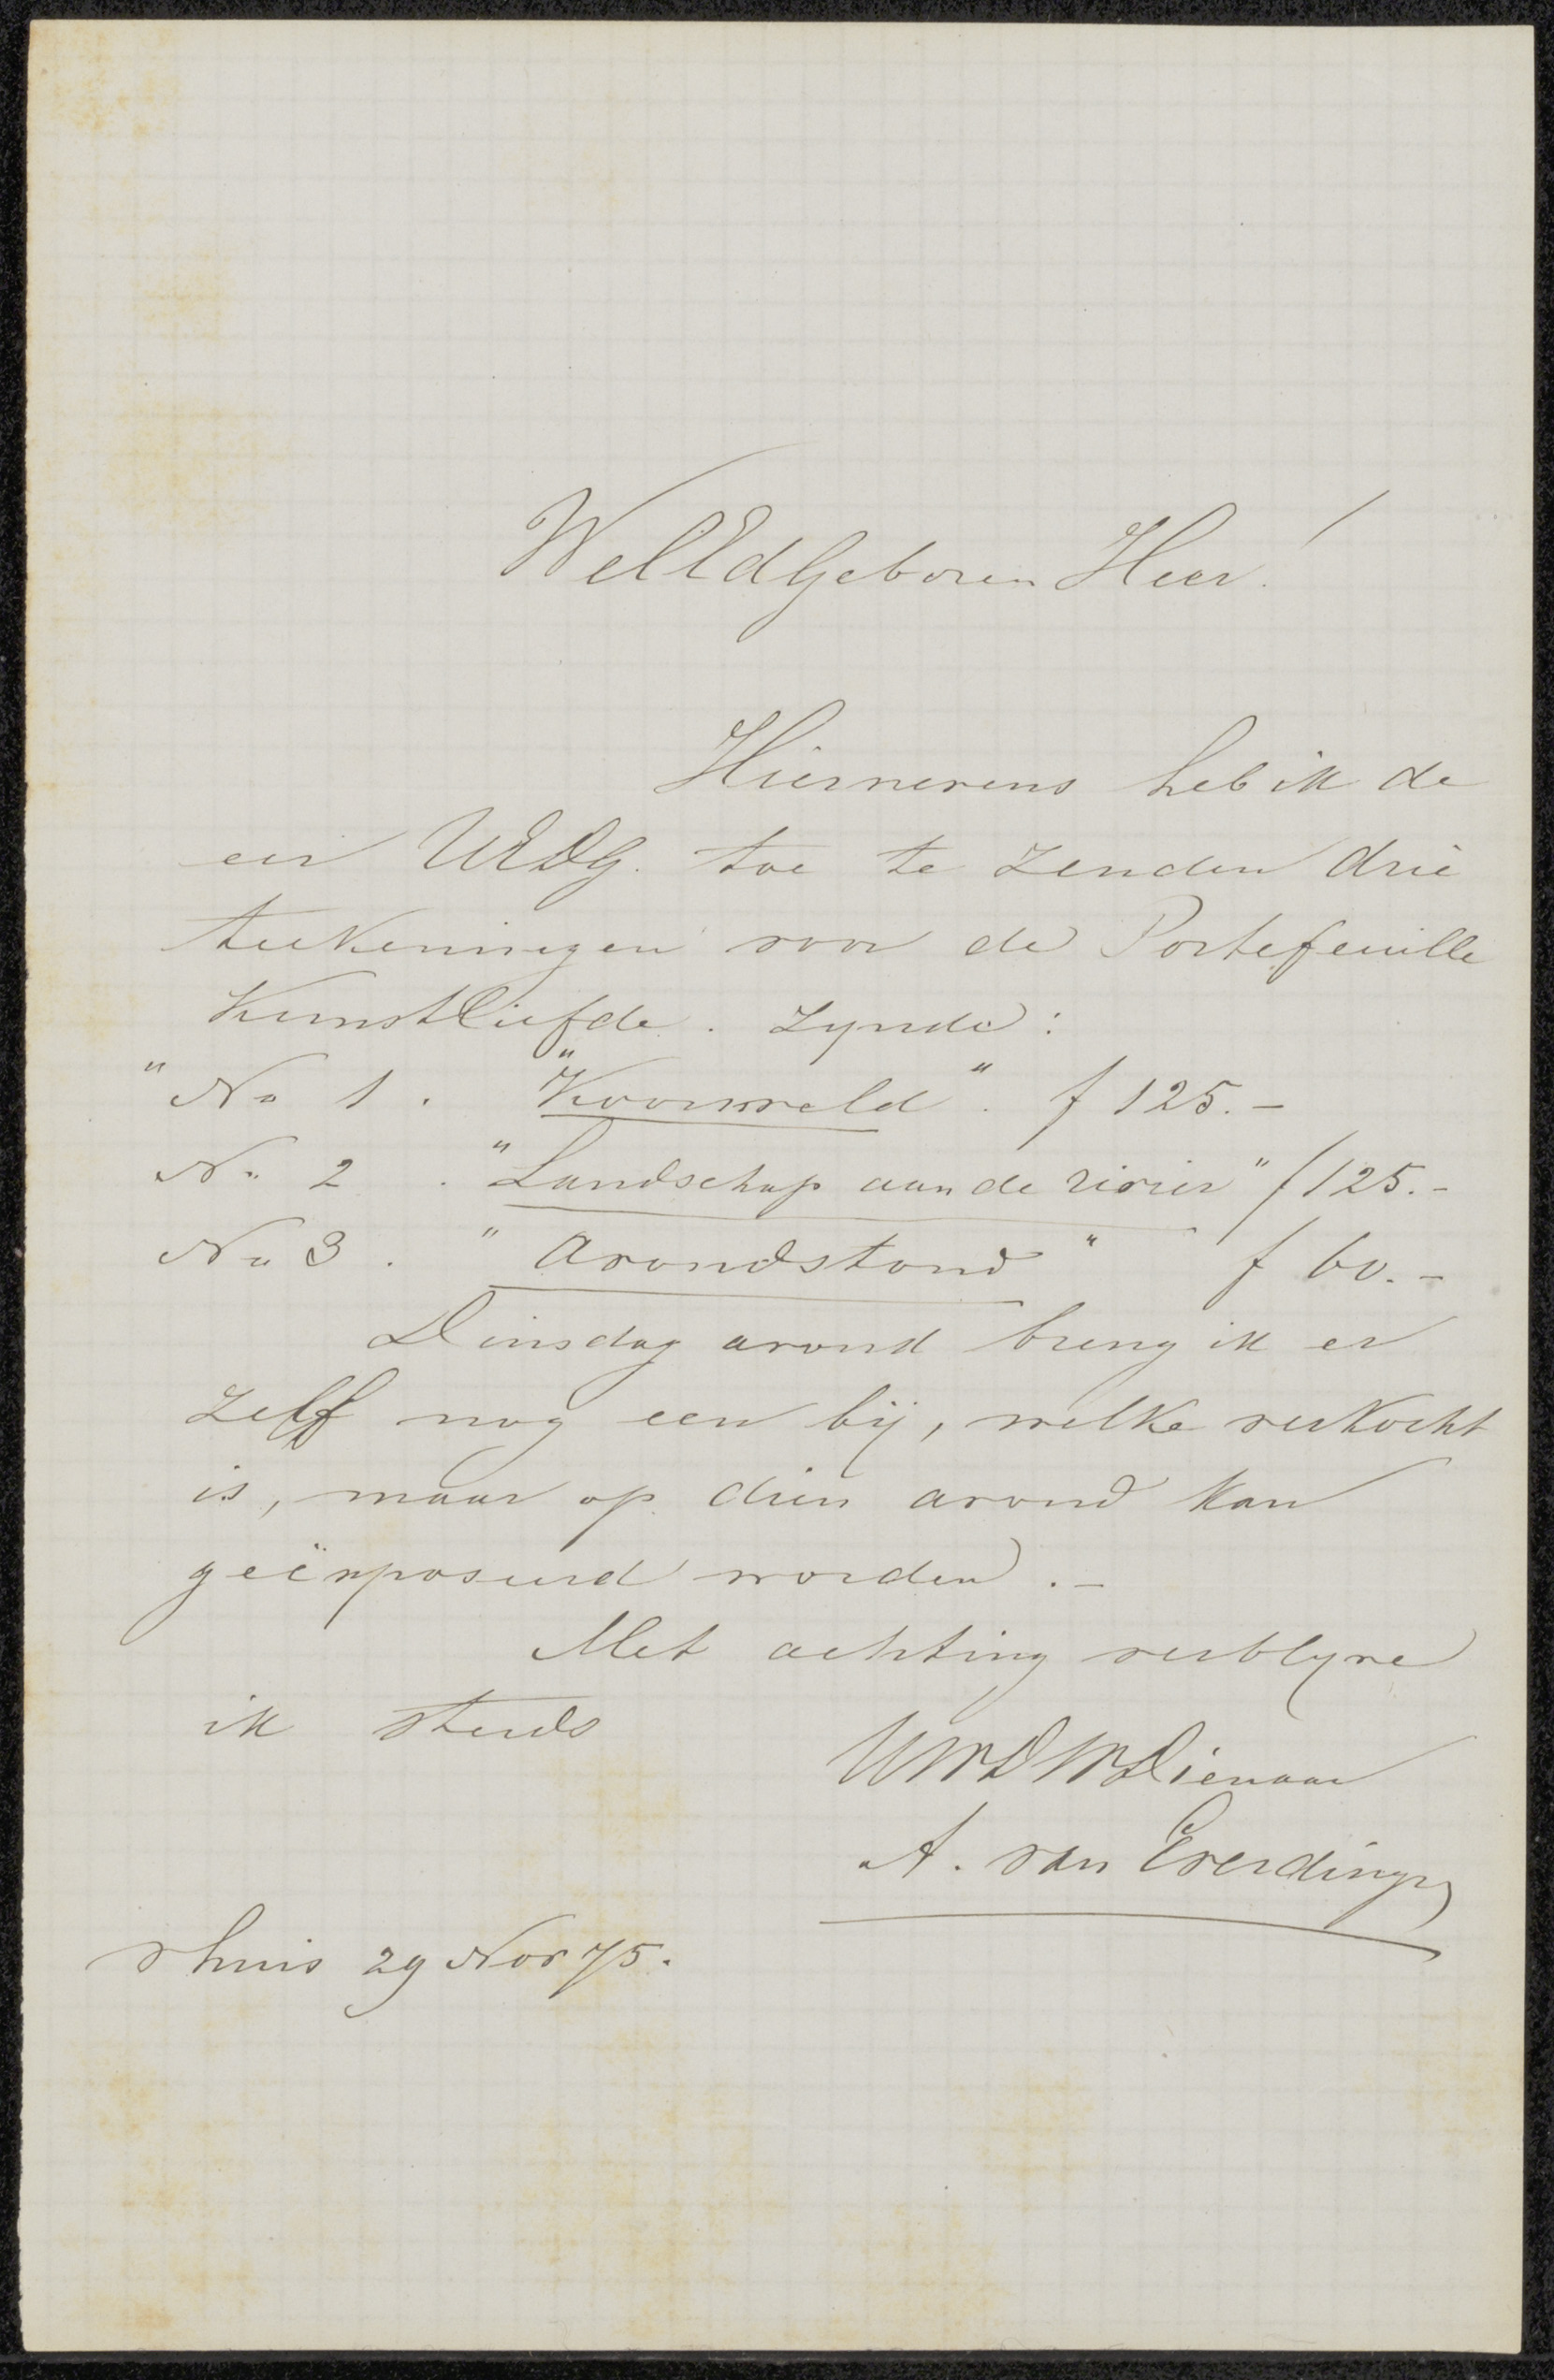 WelEdGeboren Heer!
Hiernevens heb ik de
eer UEDG. toe te zenden drie
teekeningen voor de Portefeuille
Kunstliefde. zynde:
" No 1. "Koornveld". f 125.-
No 2. "Landschap aan de rivier" f 125.-
No 3. "Avondstond" f 60.-
Dinsdag avond breng ik er
zelf nog een bij, welke verkocht
is, maar op dien avond kan
geëxposeerd worden.-
Met achting verblyve
ik steeds
UWDWDienaar
A. van Everdingen
Thuis 29 Nov 75.